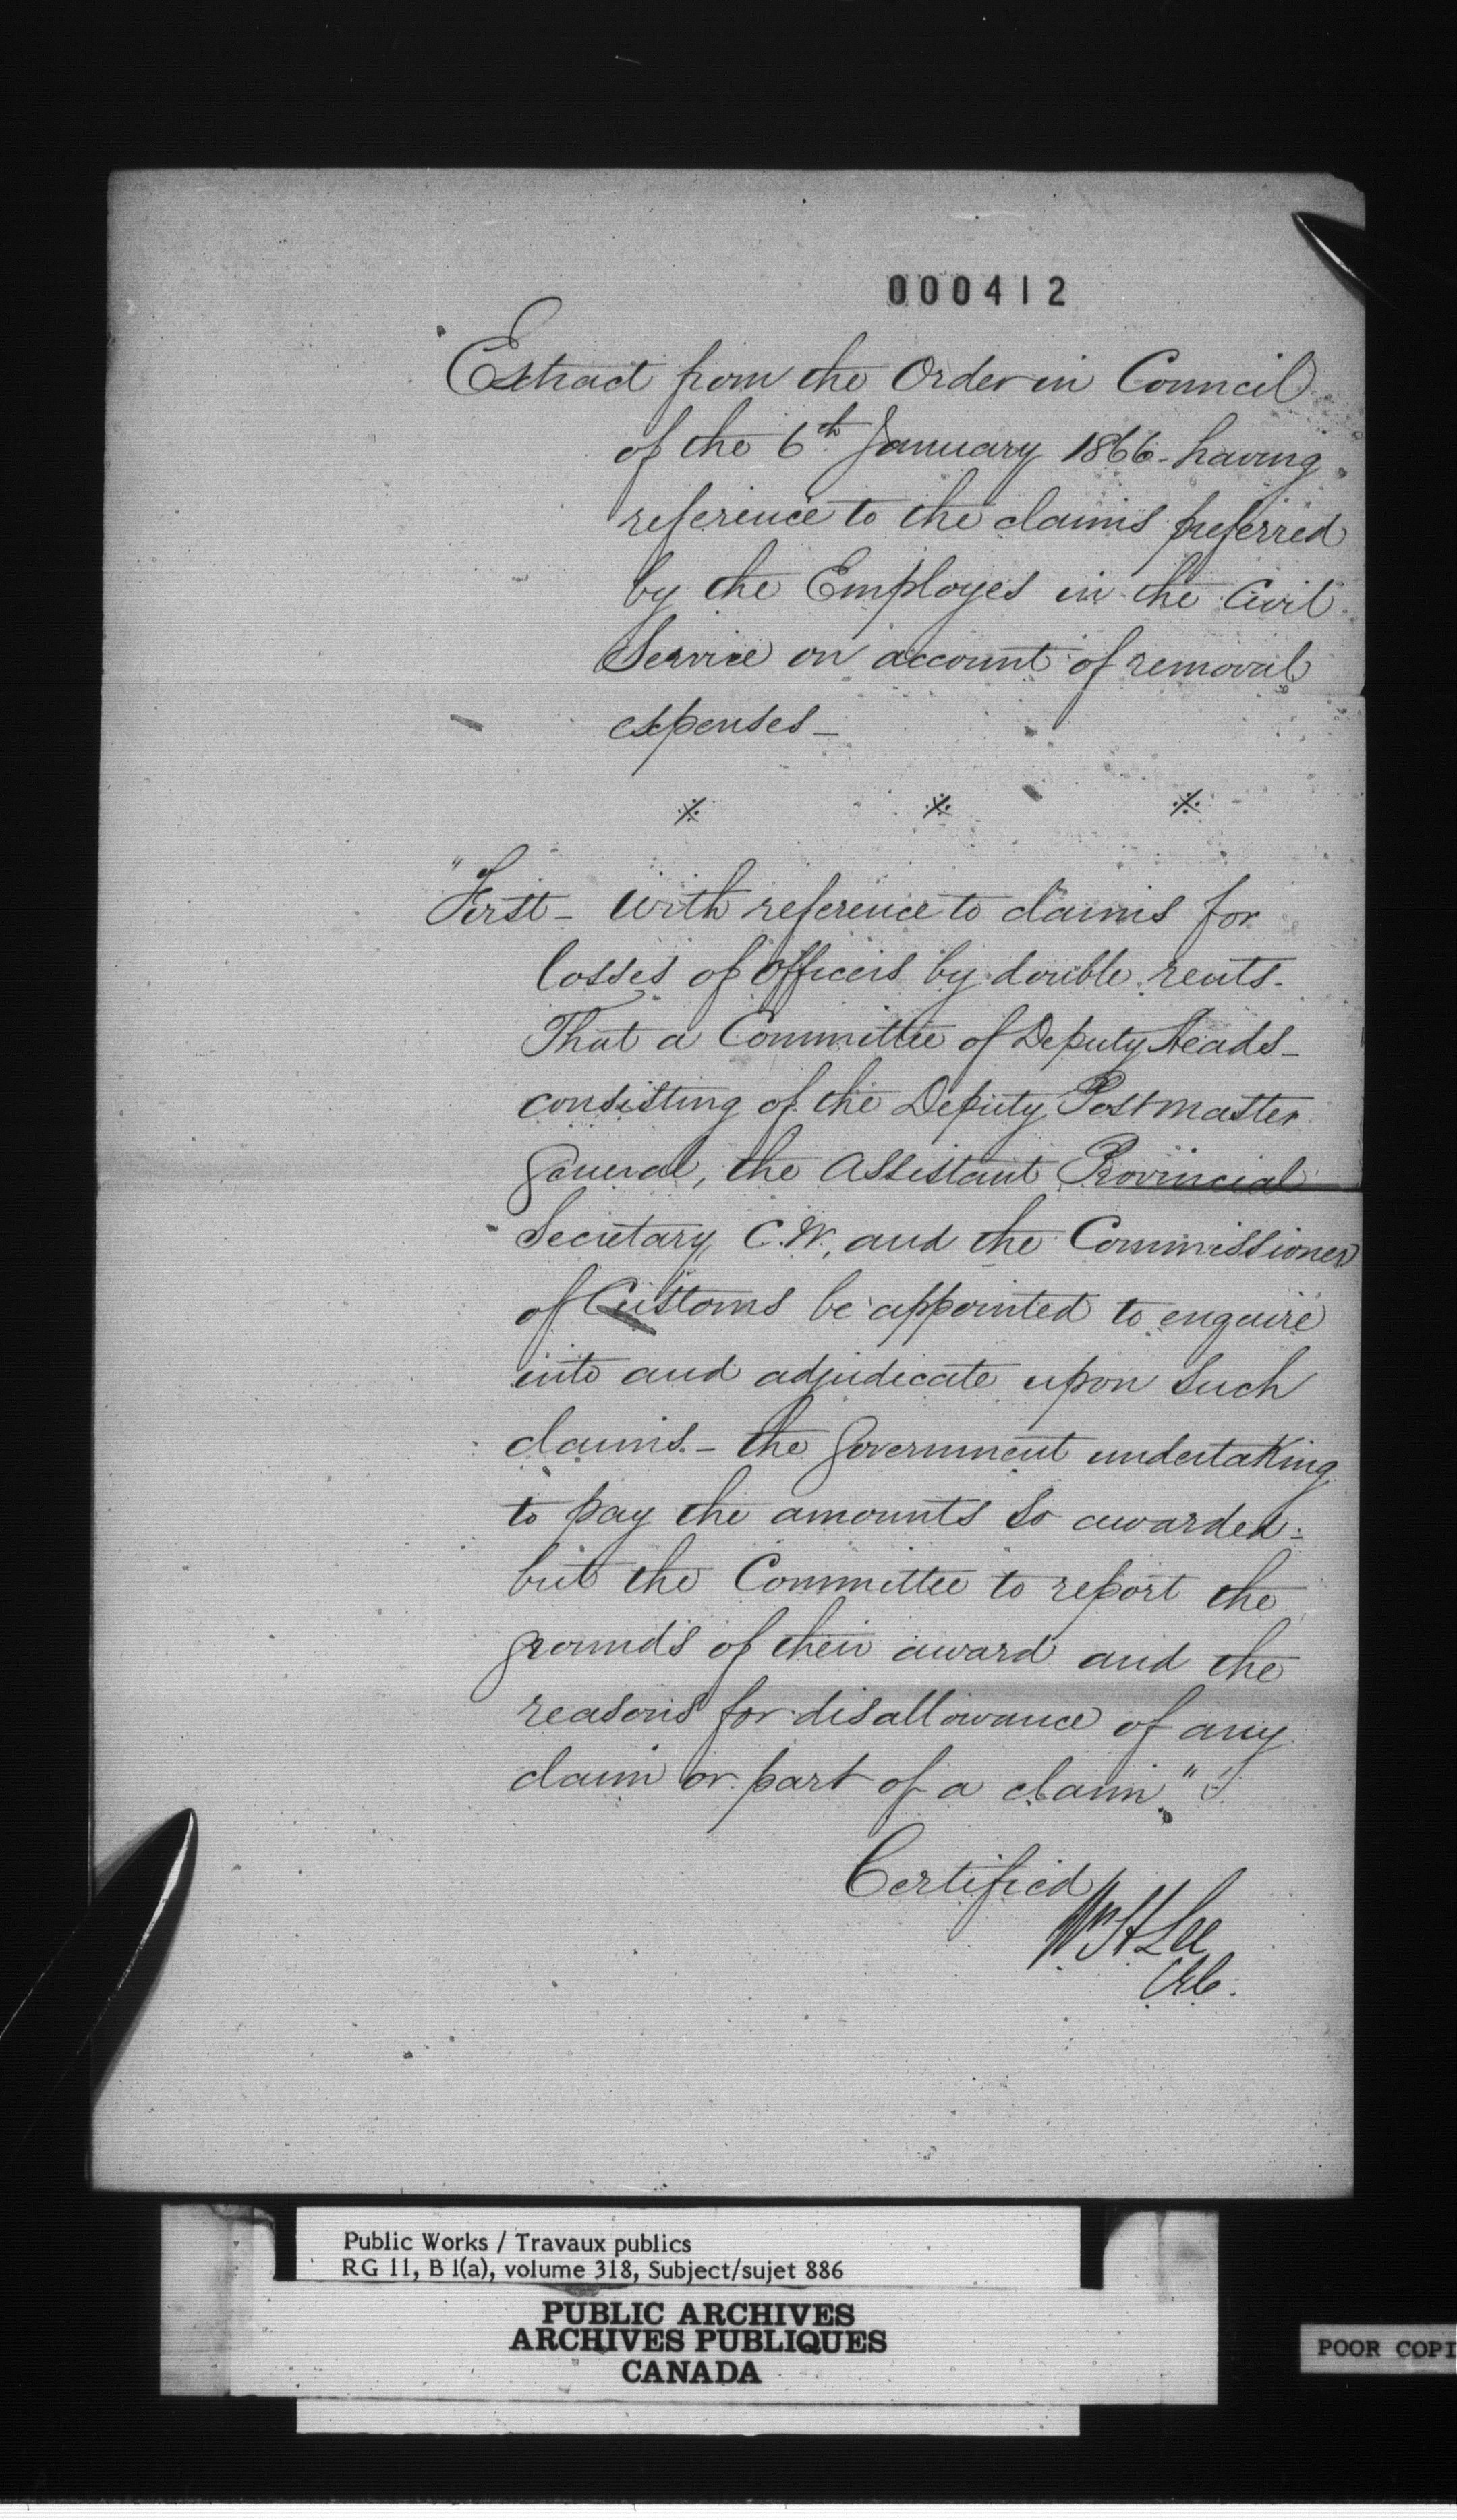 000412
Extract from the Order in Council
of the 6th January 1866 - having
reference to the claims preferred
by the Employes in the Civil
Service on account of removal
expenses -
※ ※ ※
"First - With reference to claims for
losses of officers by double rents.
That a Committee of Deputy Heads -
consisting of the Deputy Postmaster
General, the Assistant Provincial
Secretary, C.W., and the Commissioner
of Customs be appointed to enquire
into and adjudicate upon such
claims. - the Government undertaking
to pay the amounts so awarded -
but the Committee to report the
grounds of their award and the
reasons for disallowance of any
claim or part of a claim"
Certified
Wm H Lee
C.E.C.
Public Works / Travaux publics
RG 11, B 1(a), volume 318, Subject/sujet 886
PUBLIC ARCHIVES
ARCHIVES PUBLIQUES
CANADA
POOR COPI